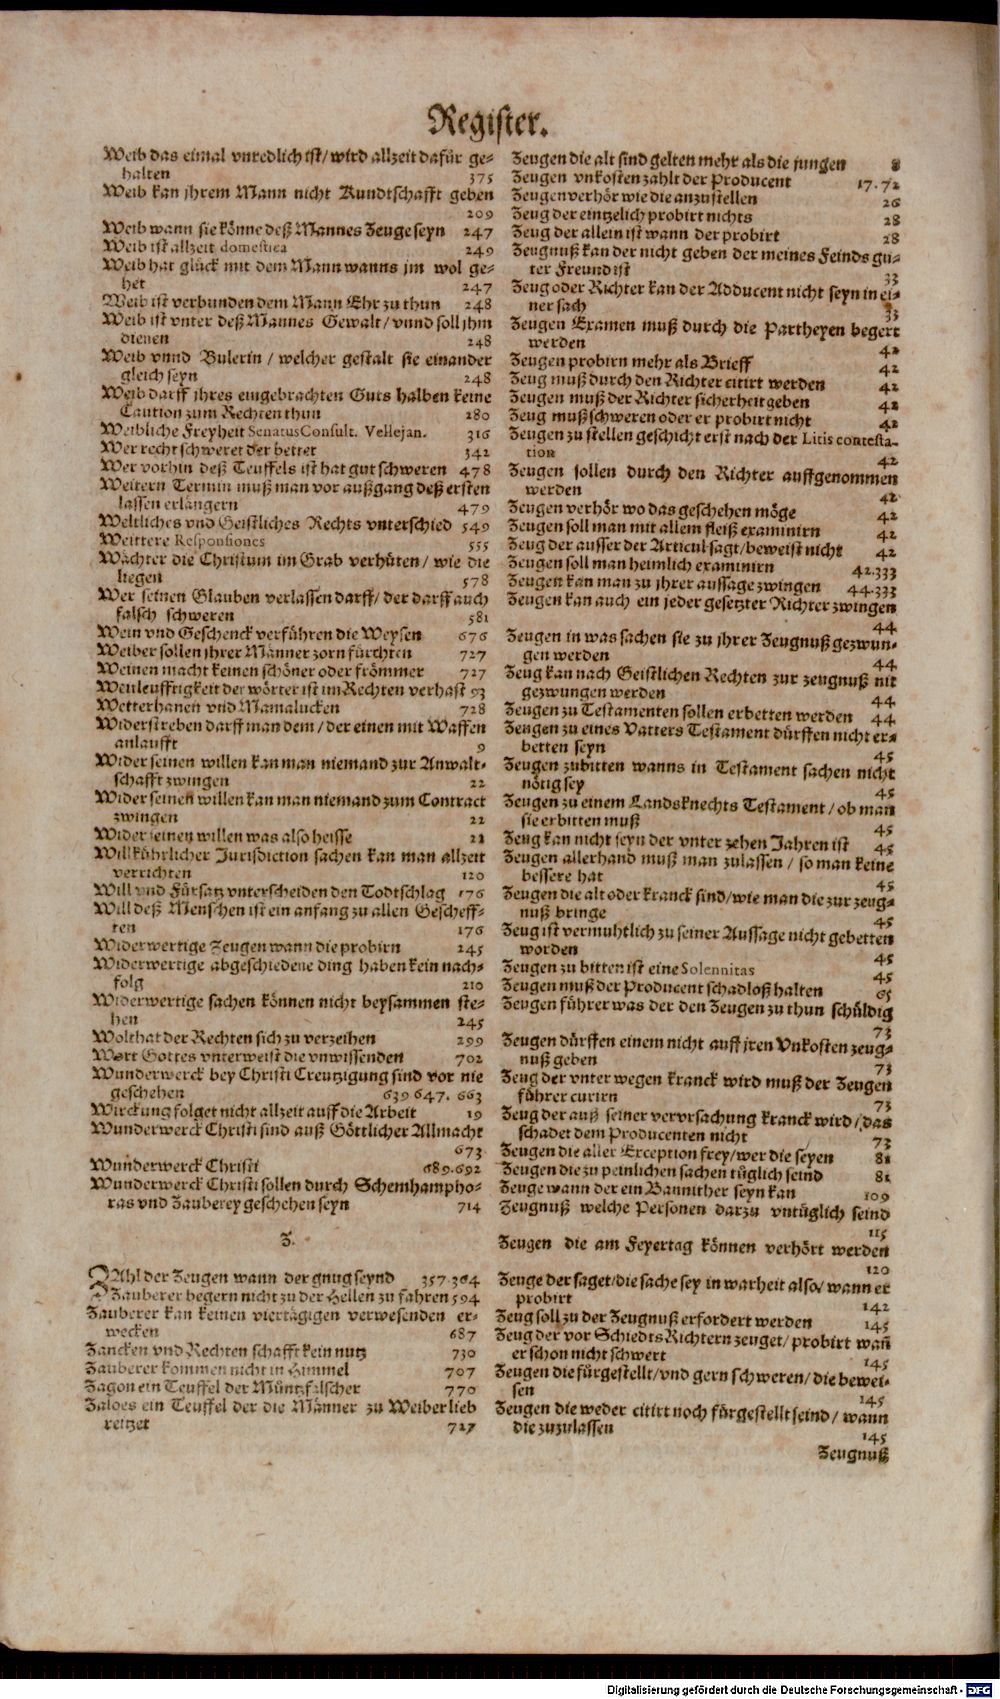 Register.
Weib das eimal vnredlich ist/ wird allzeit dafür ge-
halten 375
Weib kan jhrem Mann nicht Kundtschafft geben
209
Weib wann sie könne deß Mannes Zeuge seyn 247
Weib ist allzeit domestica 249
Weib hat glück mit dem Mann wanns jm wol ge-
het 247
Weib ist verbunden dem Mann Ehr zu thun 248
Weib ist vnter deß Mannes Gewalt/ vnnd soll jhm
dienen 248
Weib vnnd Bulerin / welcher gestalt sie einander
gleich seyn 248
Weib darff jhres eingebrachten Guts halben keine
Caution zum Rechten thun 280
Weibliche Freyheit SenatusConsult. Vellejan. 316
Wer recht schweret der bettet 342
Wer vorhin deß Teuffels ist hat gut schweren 478
Weitern Termin muß man vor außgang deß ersten
lassen erlängern 479
Weltliches vnd Geistliches Rechts vnterschied 549
Weittere Responsiones 555
Wächter die Christum im Grab verhüten / wie die
liegen 578
Wer seinen Glauben verlassen darff/ der darff auch
falsch schweren 581
Wein vnd Geschenck verführen die Weysen 676
Weiber sollen jhrer Männer zorn fürchten 727
Weinen macht keinen schöner oder frömmer 727
Weitleufftigkeit der wörter ist im Rechten verhast 93
Wetterhanen vnd Mamalucken 728
Widerstreben darff man dem / der einen mit Waffen
anlaufft 9
Wider seinen willen kan man niemand zur Anwalt-
schafft zwingen 22
Wider seinen willen kan man niemand zum Contract
zwingen 22
Wider seinen willen was also heisse 22
Willkührlicher Jurisdiction sachen kan man allzeit
verrichten 120
Will vnd Fürsatz vnterscheiden den Todtschlag 176
Will deß Menschen ist ein anfang zu allen Gescheff-
ten 176
Widerwertige Zeugen wann die probirn 245
Widerwertige abgeschiedene ding haben kein nach-
folg 210
Widerwertige sachen können nicht beysammen ste-
hen 245
Wolthat der Rechten sich zu verzeihen 299
Wort Gottes vnterweist die vnwissenden 702
Wunderwerck bey Christi Creutzigung sind vor nie
geschehen 639 647. 663
Wirckung folget nicht allzeit auff die Arbeit 19
Wunderwerck Christi sind auß Göttlicher Allmacht
673
Wunderwerck Christi 689.692
Wunderwerck Christi sollen durch Schemhampho-
ras vnd Zauberey geschehen seyn 714
Z.
ZAhl der Zeugen wann der gnug seynd 357.364
Zauberer begern nicht zu der Hellen zu fahren 594
Zauberer kan keinen viertägigen verwesenden er-
wecken 687
Zancken vnd Rechten schafft kein nutz 730
Zauberer kommen nicht in Himmel 707
Zagon ein Teuffel der Müntzfälscher 770
Zaloes ein Teuffel der die Männer zu Weiberlieb
reitzet 727
Zeugen die alt sind gelten mehr als die jungen 8
Zeugen vnkosten zahlt der Producent 17.72
Zeugenverhör wie die anzustellen 26
Zeug der eintzelich probirt nichts 28
Zeug der allein ist wann der probirt 28
Zeugnuß kan der nicht geben der meines Feinds gu-
ter Freund ist 33
Zeug oder Richter kan der Adducent nicht seyn in ei-
ner sach 33
Zeugen Examen muß durch die Partheyen begert
werden 42
Zeugen probirn mehr als Brieff 42
Zeug muß durch den Richter citirt werden 42
Zeugen muß der Richter sicherheit geben 42
Zeug muß schweren oder er probirt nicht 42
Zeugen zu stellen geschicht erst nach der Litis contesta-
tion 42
Zeugen sollen durch den Richter auffgenommen
werden 42
Zeugen verhör wo das geschehen möge 42
Zeugen soll man mit allem fleiß examinirn 42
Zeug der ausser der Articul sagt/ beweist nicht 42
Zeugen soll man heimlich examinirn 42.333
Zeugen kan man zu jhrer aussage zwingen 44.333
Zeugen kan auch ein jeder gesetzter Richter zwingen
44
Zeugen in was sachen sie zu jhrer Zeugnuß gezwun-
gen werden 44
Zeug kan nach Geistlichen Rechten zur zeugnuß nit
gezwungen werden 44
Zeugen zu Testamenten sollen erbetten werden 44
Zeugen zu eines Vatters Testament dürffen nicht er-
betten seyn 45
Zeugen zubitten wanns in Testament sachen nicht
nötig sey 45
Zeugen zu einem Landsknechts Testament / ob man
sie erbitten muß 45
Zeug kan nicht seyn der vnter zehen Jahren ist 45
Zeugen allerhand muß man zulassen / so man keine
bessere hat 45
Zeugen die alt oder kranck sind/ wie man die zur zeug-
nuß bringe 45
Zeug ist vermuhtlich zu seiner Aussage nicht gebetten
worden 45
Zeugen zu bitten ist eine Solennitas 45
Zeugen muß der Producent schadloß halten 65
Zeugen führer was der den Zeugen zu thun schüldig
73
Zeugen dürffen einem nicht auff jren Vnkosten zeug-
nuß geben 73
Zeug der vnter wegen kranck wird muß der Zeugen
führer curirn 73
Zeug der auß seiner vervrsachung kranck wird / das
schadet dem Producenten nicht 73
Zeugen die aller Exception frey/ wer die seyen 81
Zeugen die zu peinlichen sachen tüglich seind 81
Zeuge wann der ein Bannither seyn kan 109
Zeugnuß welche Personen darzu vntüglich seind
115
Zeugen die am Feyertag können verhört werden
120
Zeuge der saget/ die sache sey in warheit also/ wann er
probirt 142
Zeug soll zu der Zeugnuß erfordert werden 145
Zeug der vor Schiedts Richtern zeuget/ probirt wañ
er schon nicht schwert 145
Zeugen die fürgestellt/ vnd gern schweren/ die bewei-
sen 145
Zeugen die weder citirt noch fürgestellt seind / wann
die zuzulassen 145
Zeugnuß
Digitalisierung gefördert durch die Deutsche Forschungsgemeinschaft - DFG